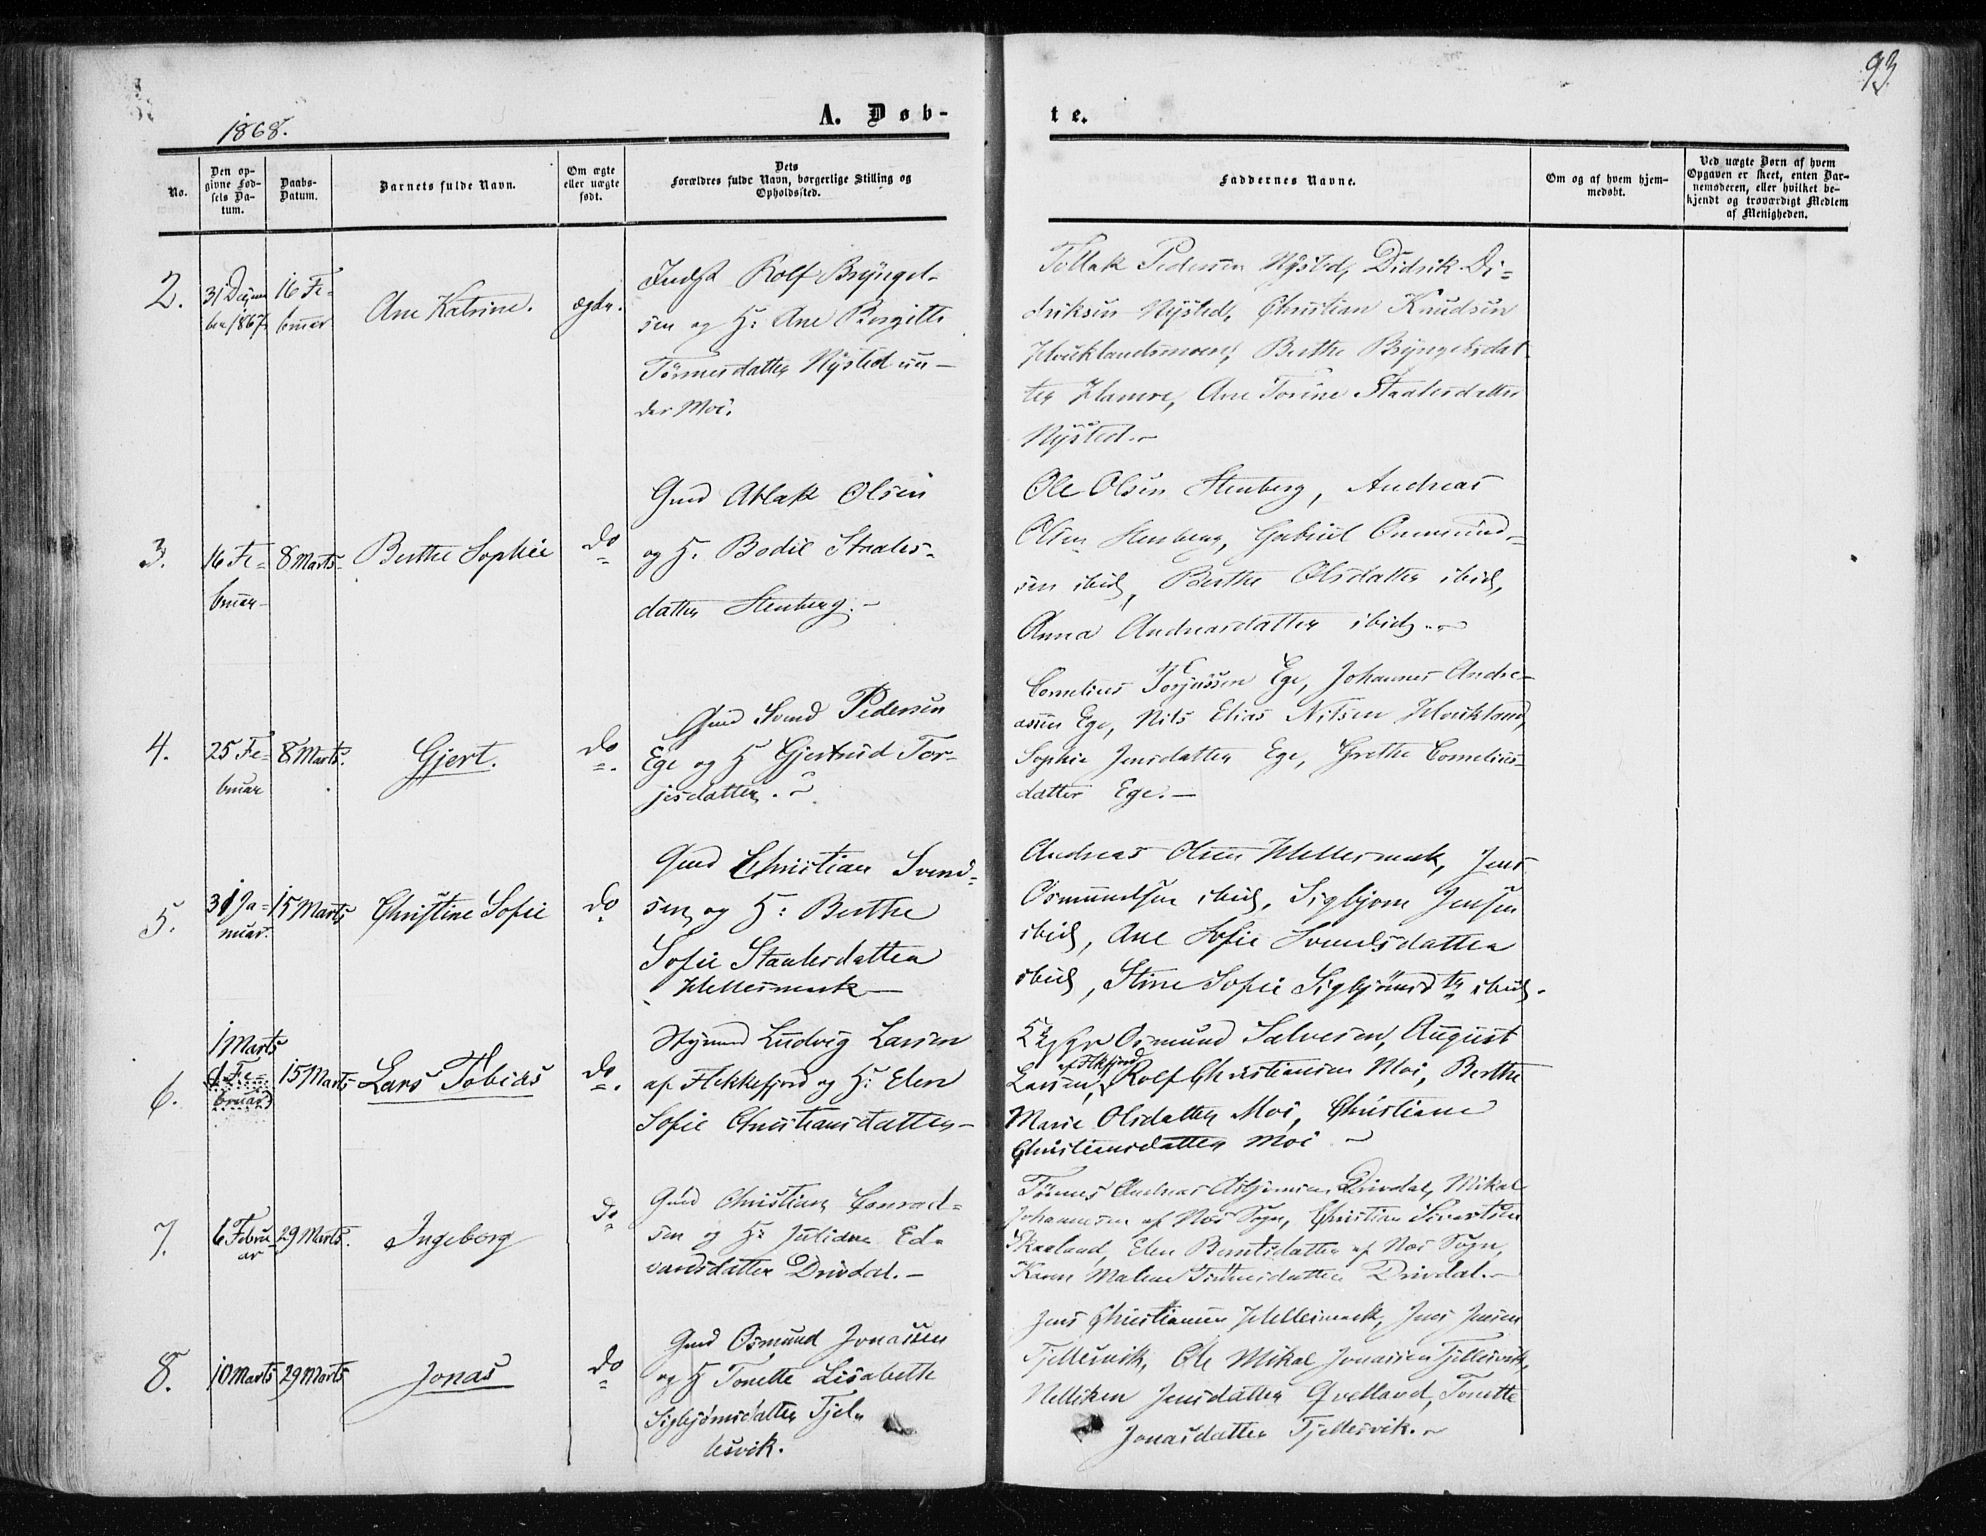 93
1868.
A. Døb-
te.
No.
Den op-
givne Fød-
sels Da-
tum.
Daabs-
Datum.
Barnets fulde Navn.
Om ægte
eller uægte
født.
Dets
Forældres fulde Navn, borgerlige Stilling og
Opholdssted.
Faddernes Navne.
Om og af hvem hjem-
medøbt.
Ved uægte Børn af hvem
Opgaven er skeet, enten Bar-
nemoderen, eller hvilket be-
kjendt og troværdigt Medlem
af Menigheden.
2.
31 Decem
ber 1867
16 Fe-
bruar
Ane Katrine.
ægte.
Indst Rolf Bryngel-
sen og H: Ane Birgitte
Tønnesdatter Nysted un-
der Moi.
Tollak Pedersen Nysted, Didrik Di-
driksen Nysted, Christian Knudsen
Houklandsmoen, Berthe Bryngelsdat
ter Hamre, Ane Torine Staalesdatter
Nysted.
3.
16 Fe-
bruar
8 Marts
Berthe Sophie
do
Gmd Atlak Olsen
og H. Bodil Staales-
datter Stenberg.-
Ole Olsen Stenberg, Andreas
Olsen Stenberg, Gabriel Onmund-
sen ibid, Berthe Olsdatter ibid,
Anna Andreasdatter ibid.
4.
25 Fe-
bruar
8 Marts.
Gjert.
do
Gmd Svend Pedersen
Ege og H Gjertrud Tor-
jesdatter.
Cornelius Torjussen Ege, Johannes Andre-
assen Ege, Nils Elias Nilsen Houkland,
Sophie Jensdatter Ege, Grethe Cornelius-
datter Ege.-
5.
31 Ja-
nuar.
15 Marts
Christine Sofie
do
Gmd Christian Svend-
sen og H: Berthe
Sofie Staalesdatter
Hellesmark-
Andreas Olsen Hellesmark, Jens
Osmundsen ibid, Sigbjorn Jensen
ibid, Ane Sofie Svendsdatter
ibid, Stine Sofie Sigbjørnsdtr ibid.
6.
1 Marts
1 Fe-
bruar
15 Marts
Lars Tobias
do
Styrmd Ludvig Larsen
af Flekkefjord og H: Elen
Sofie Christiansdatter-
Osmund Salvesen, August
Larsen, af Flkfjord Rolf Christiansen Moi, Berthe
Marie Olsdatter Moi, Christiane
Christiansdatter Moi
7.
6 Febru-
ar
29 Marts.
Ingeborg
do
Gmd Christian Conrad-
sen og H: Juliane Ed-
vardsdatter Drivdal.-
Tønnes Andreas Asbjørnsen Drivdal, Mikal
Johannesen af Moi Sogn, Christian Sivertsen
Skaaland, Elen Berntsdatter af Moi Sogn,
Karen Malene Tønnesdatter Drivdal.-
8.
10 Marts
29 Marts
Jonas
do
Gmd Osmund Jonassen
og H Tonette Lisabeth
Sigbjørnsdatter Fjel-
lesvik.
Jens Christiansen Hellesmark, Jens Jensen
Fjellesvik, Ole Mikal Jonassen Fjellesvik,
Nelliken Jensdatter Qvelland, Tonette
Jonasdatter Fjellesvik.